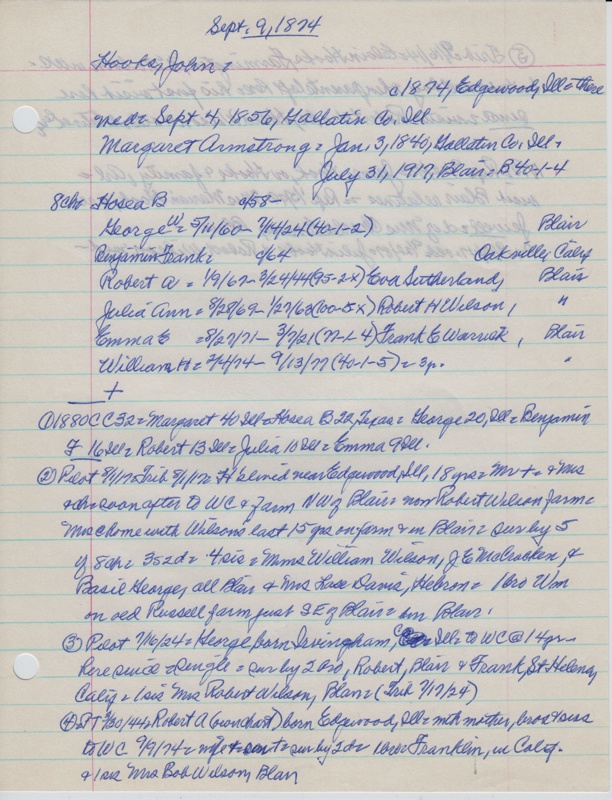 Sept. 9, 1874
Hooks, John =
c1874, Edgewood, Ill = there
med = Sept. 4, 1856, Gallatin Co. Ill
Margaret Armstrong = Jan. 3, 1840, Gallatin Co. Ill =
July 31, 1917, Blair = B40-1-4
8chr Hosea B c/58 -
George W = 5/11/60 - 7/14/24 (40-1-2) Blair
Benjamin Frank = c/64 Oakville, Calif
Robert A = 1/9/67 - 3/24/44 (95-2-x) Eva Sutherland, Blair
Julia Ann = 8/28/69 - 1/27/63 (00-5x) Robert H Wilson, "
Emma E = 8/27/71 - 3/7/21 (77-1-4) Frank E Warrick, Blair
William H = 2/4/74 - 9/13/77 (40-1-5) = 3p. "
+
① 1880 CC 32 = Margaret 40 Ill = Hosea B 22, Texas = George 20, Ill = Benjamin
F 16 Ill = Robert 13 Ill = Julia 10 Ill = Emma 9 Ill.
② Pilot 8/1/17 = Trib 8/1/17 = H's lived near Edgewood, Ill, 18 yrs = Mr + = & Mrs
& chr soon after to WC & farm NW of Blair = now Robert Wilson farm =
Mrs c home with Wilsons last 15 yrs on farm & in Blair = sur by 5
of 8 chr = 3s 2d = 4 sis = Mmes William Wilson, J E McCracken, &
Basil George, all Blair & Mrs Davis, Hebron = 1 bro Wm
on old Russell farm just SE of Blair = bur Blair.
③ Pilot 7/16/24 = George born Irvingham, Ill = to WC @ 14 yr =
here since = single = sur by 2 bro, Robert, Blair & Frank, St Helena,
Calif = 1 sis Mrs Robert Wilson, Blair = (Trib 7/17/24)
④ PT 3/30/44, Robert A (bov chart) born Edgewood, Ill = with mother, bros & siss
to WC 9/9/74 = sur by 2d = 1 bro = Franklin, in Calif.
& 1 sis Mrs Bob Wilson, Blair